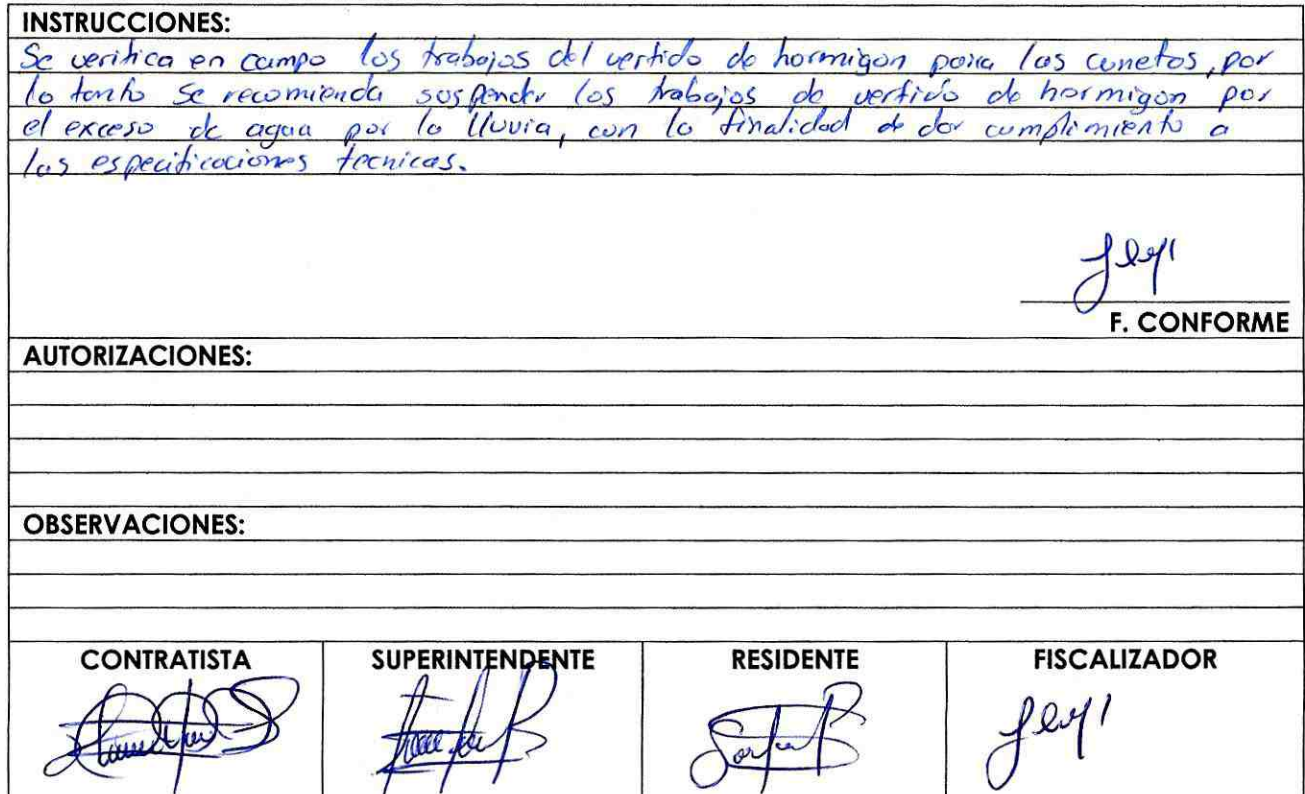 INSTRUCCIONES:
Se verifica en campo los trabajos del vertido de hormigon para las cunetas, por
lo tanto se recomienda suspender los trabajos de vertido de hormigon por
el exceso de agua por la lluvia, con la finalidad de dar cumplimiento a
las especificaciones tecnicas.
F. CONFORME
AUTORIZACIONES:
OBSERVACIONES:
CONTRATISTA SUPERINTENDENTE RESIDENTE FISCALIZADOR